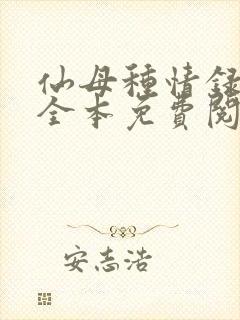 仙母種情録
全本免費閱
安志浩